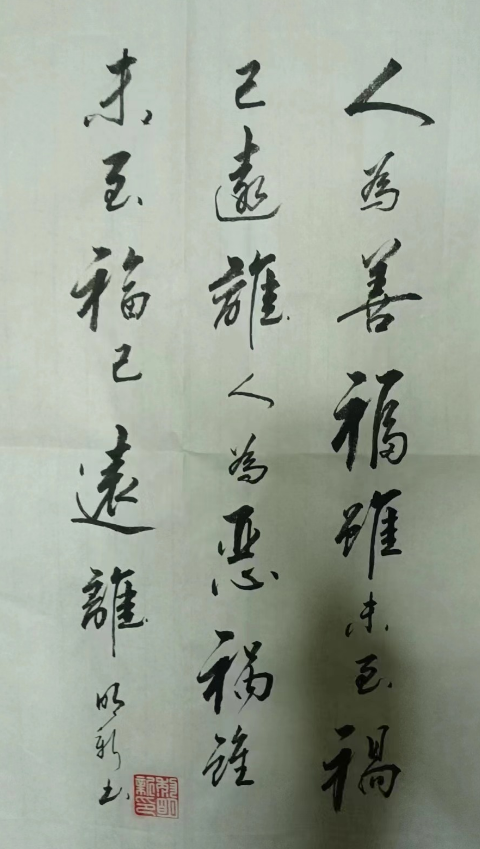 人為善福雖未至禍
已遠離人為惡禍雖
未至福已遠離
明新书